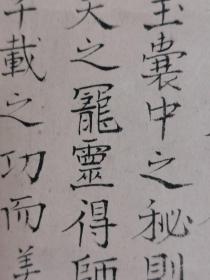 玉囊中之秘則
天之寵靈得師
千載之功而美